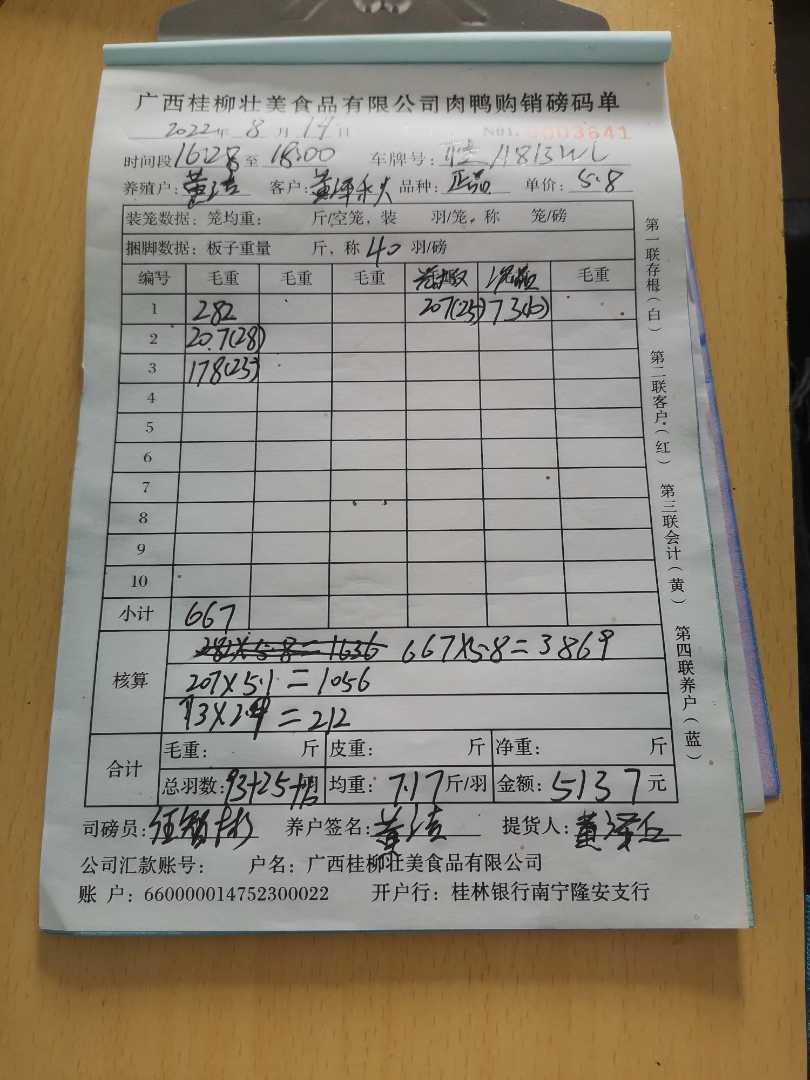 广西桂柳壮美食品有限公司肉鸭购销磅码单
2022年 8月 14日 No1. 0003641
时间段 16:28 至 18:00 车牌号: 11813WL
养殖户: 黄洁 客户: 黄泽 品种: 正品 单价: 5.8
装笼数据: 笼均重: 斤/空笼, 装 羽/笼, 称 笼/磅
捆脚数据: 板子重量 斤, 称 40 羽/磅
编号 毛重 毛重 毛重 毛重
1 282 207(25) 73(10)
2 20.7(28)
3 178(25)
4
5
6
7
8
9
10
小计 667
核算 282×5.8=1636 667×5.8=3869
207×5.1=1056
73×2.9=212
合计 毛重: 斤 皮重: 斤 净重: 斤
总羽数: 93+25+ 羽 均重: 7.17 斤/羽 金额: 5137 元
司磅员: 养户签名: 黄洁 提货人: 黄泽
公司汇款账号: 户名: 广西桂柳壮美食品有限公司
账 户: 660000014752300022 开户行: 桂林银行南宁隆安支行
第一联存根(白) 第二联客户(红) 第三联会计(黄) 第四联养户(蓝)